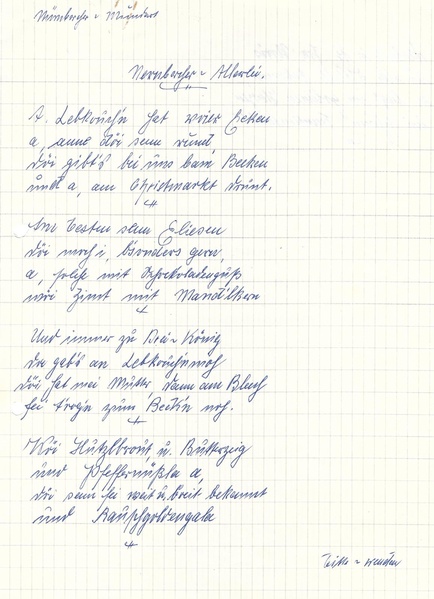 Nürnbercher - Mundart
Nernbercher - Allerlei.
A Lebkouch'n hat vier Ecken
a, anne döi senn rund,
döi gibt's bei uns bam Becken
und a, am Christmarkt drunt.
Am besten san Eliesen
döi moch i, b'sonders gern,
a, solche mit Schokoladenguß
mit Zimt mit Mandlkern
Und immer zu Drei - König
da gab's an Lebkouch'n noch
döi hat mei Mutter, dann am Blech
fei trog'n zum Beck'n noch.
Hutzlbrout, u. Butterzeig
und Pfeffernüßla a,
döi senn fei weit u. breit bekannt
und Rauschgoldengala
bitte - wenden